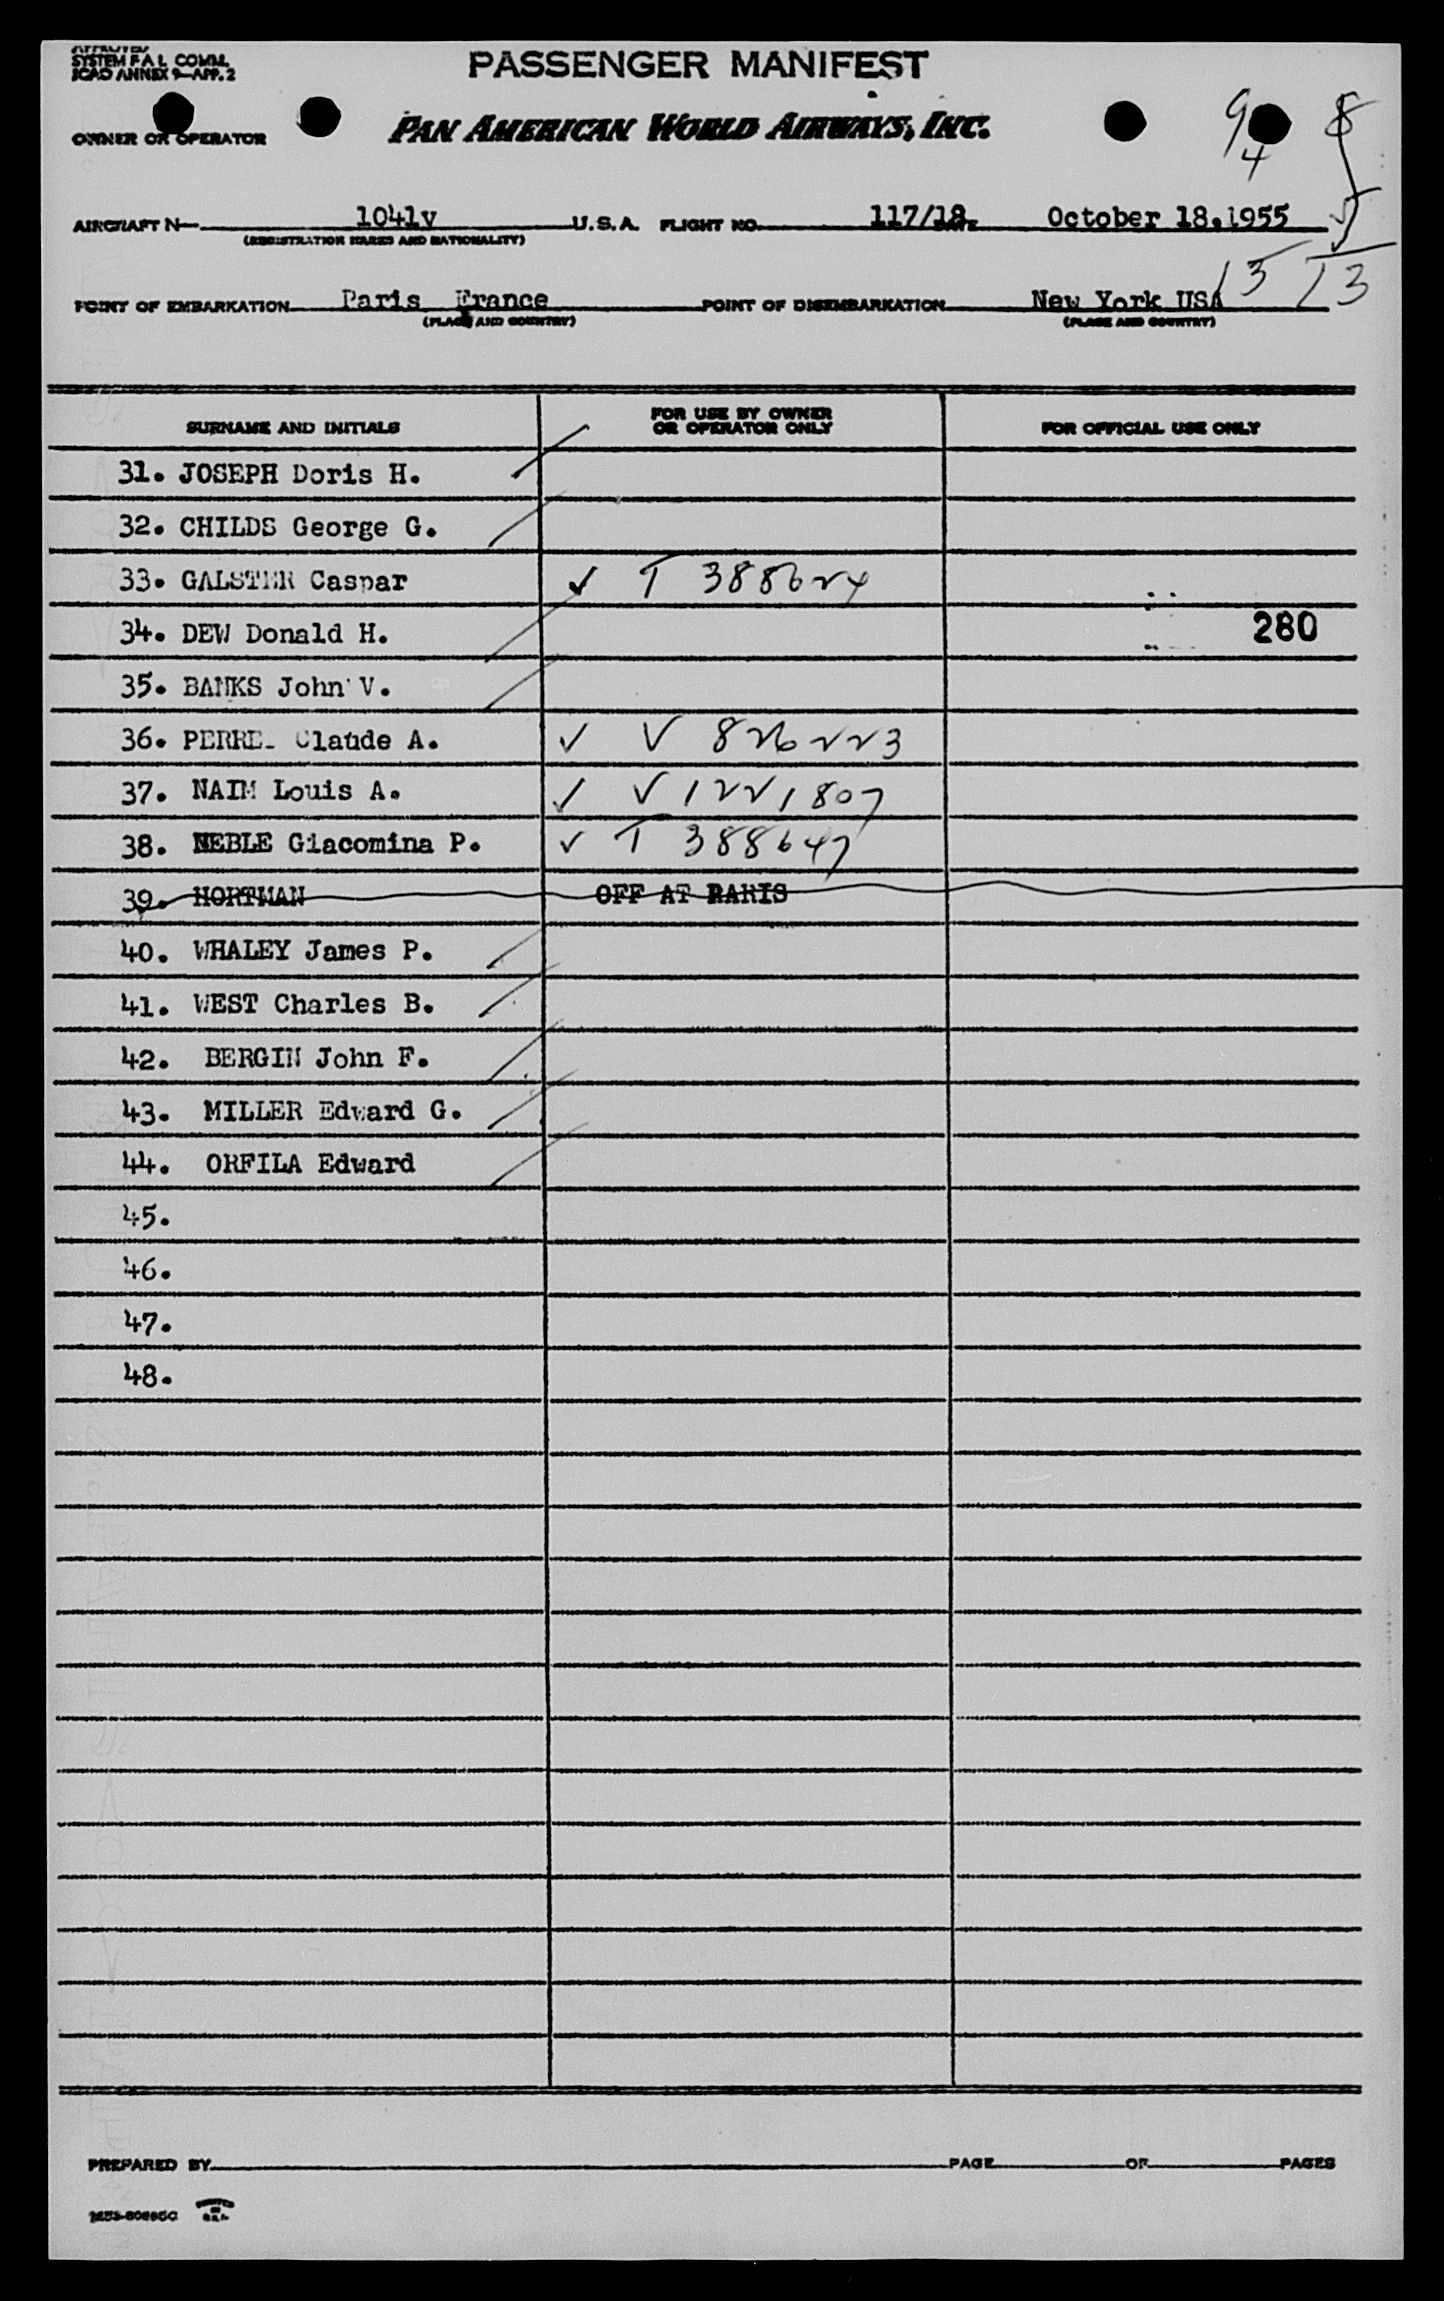 APPROVED
SYSTEM F A L COMM.
ICAO ANNEX 9—APP. 2
PASSENGER MANIFEST
OWNER OR OPERATOR
PAN AMERICAN WORLD AIRWAYS, INC.
9 8
4
AIRCRAFT N 1041v U.S.A. FLIGHT NO. 117/18 DATE October 18,1955
(REGISTRATION MARKS AND NATIONALITY)
13 13
POINT OF EMBARKATION Paris France POINT OF DISEMBARKATION New York USA
(PLACE AND COUNTRY) (PLACE AND COUNTRY)
SURNAME AND INITIALS FOR USE BY OWNER OR OPERATOR ONLY FOR OFFICIAL USE ONLY
31. JOSEPH Doris H.
32. CHILDS George G.
33. GALSTER Caspar ✓ T 388624
34. DEW Donald H. 280
35. BANKS John V.
36. Claude A. ✓ V 826223
37. NAIM Louis A. ✓ V 1221807
38. NEBLE Giacomina P. ✓ T 388647
39. HORTMAN OFF AT PARIS
40. WHALEY James P.
41. WEST Charles B.
42. BERGIN John F.
43. MILLER Edward G.
44. ORFILA Edward
45.
46.
47.
48.
PREPARED BY PAGE OF PAGES
PRINTED IN U.S.A.